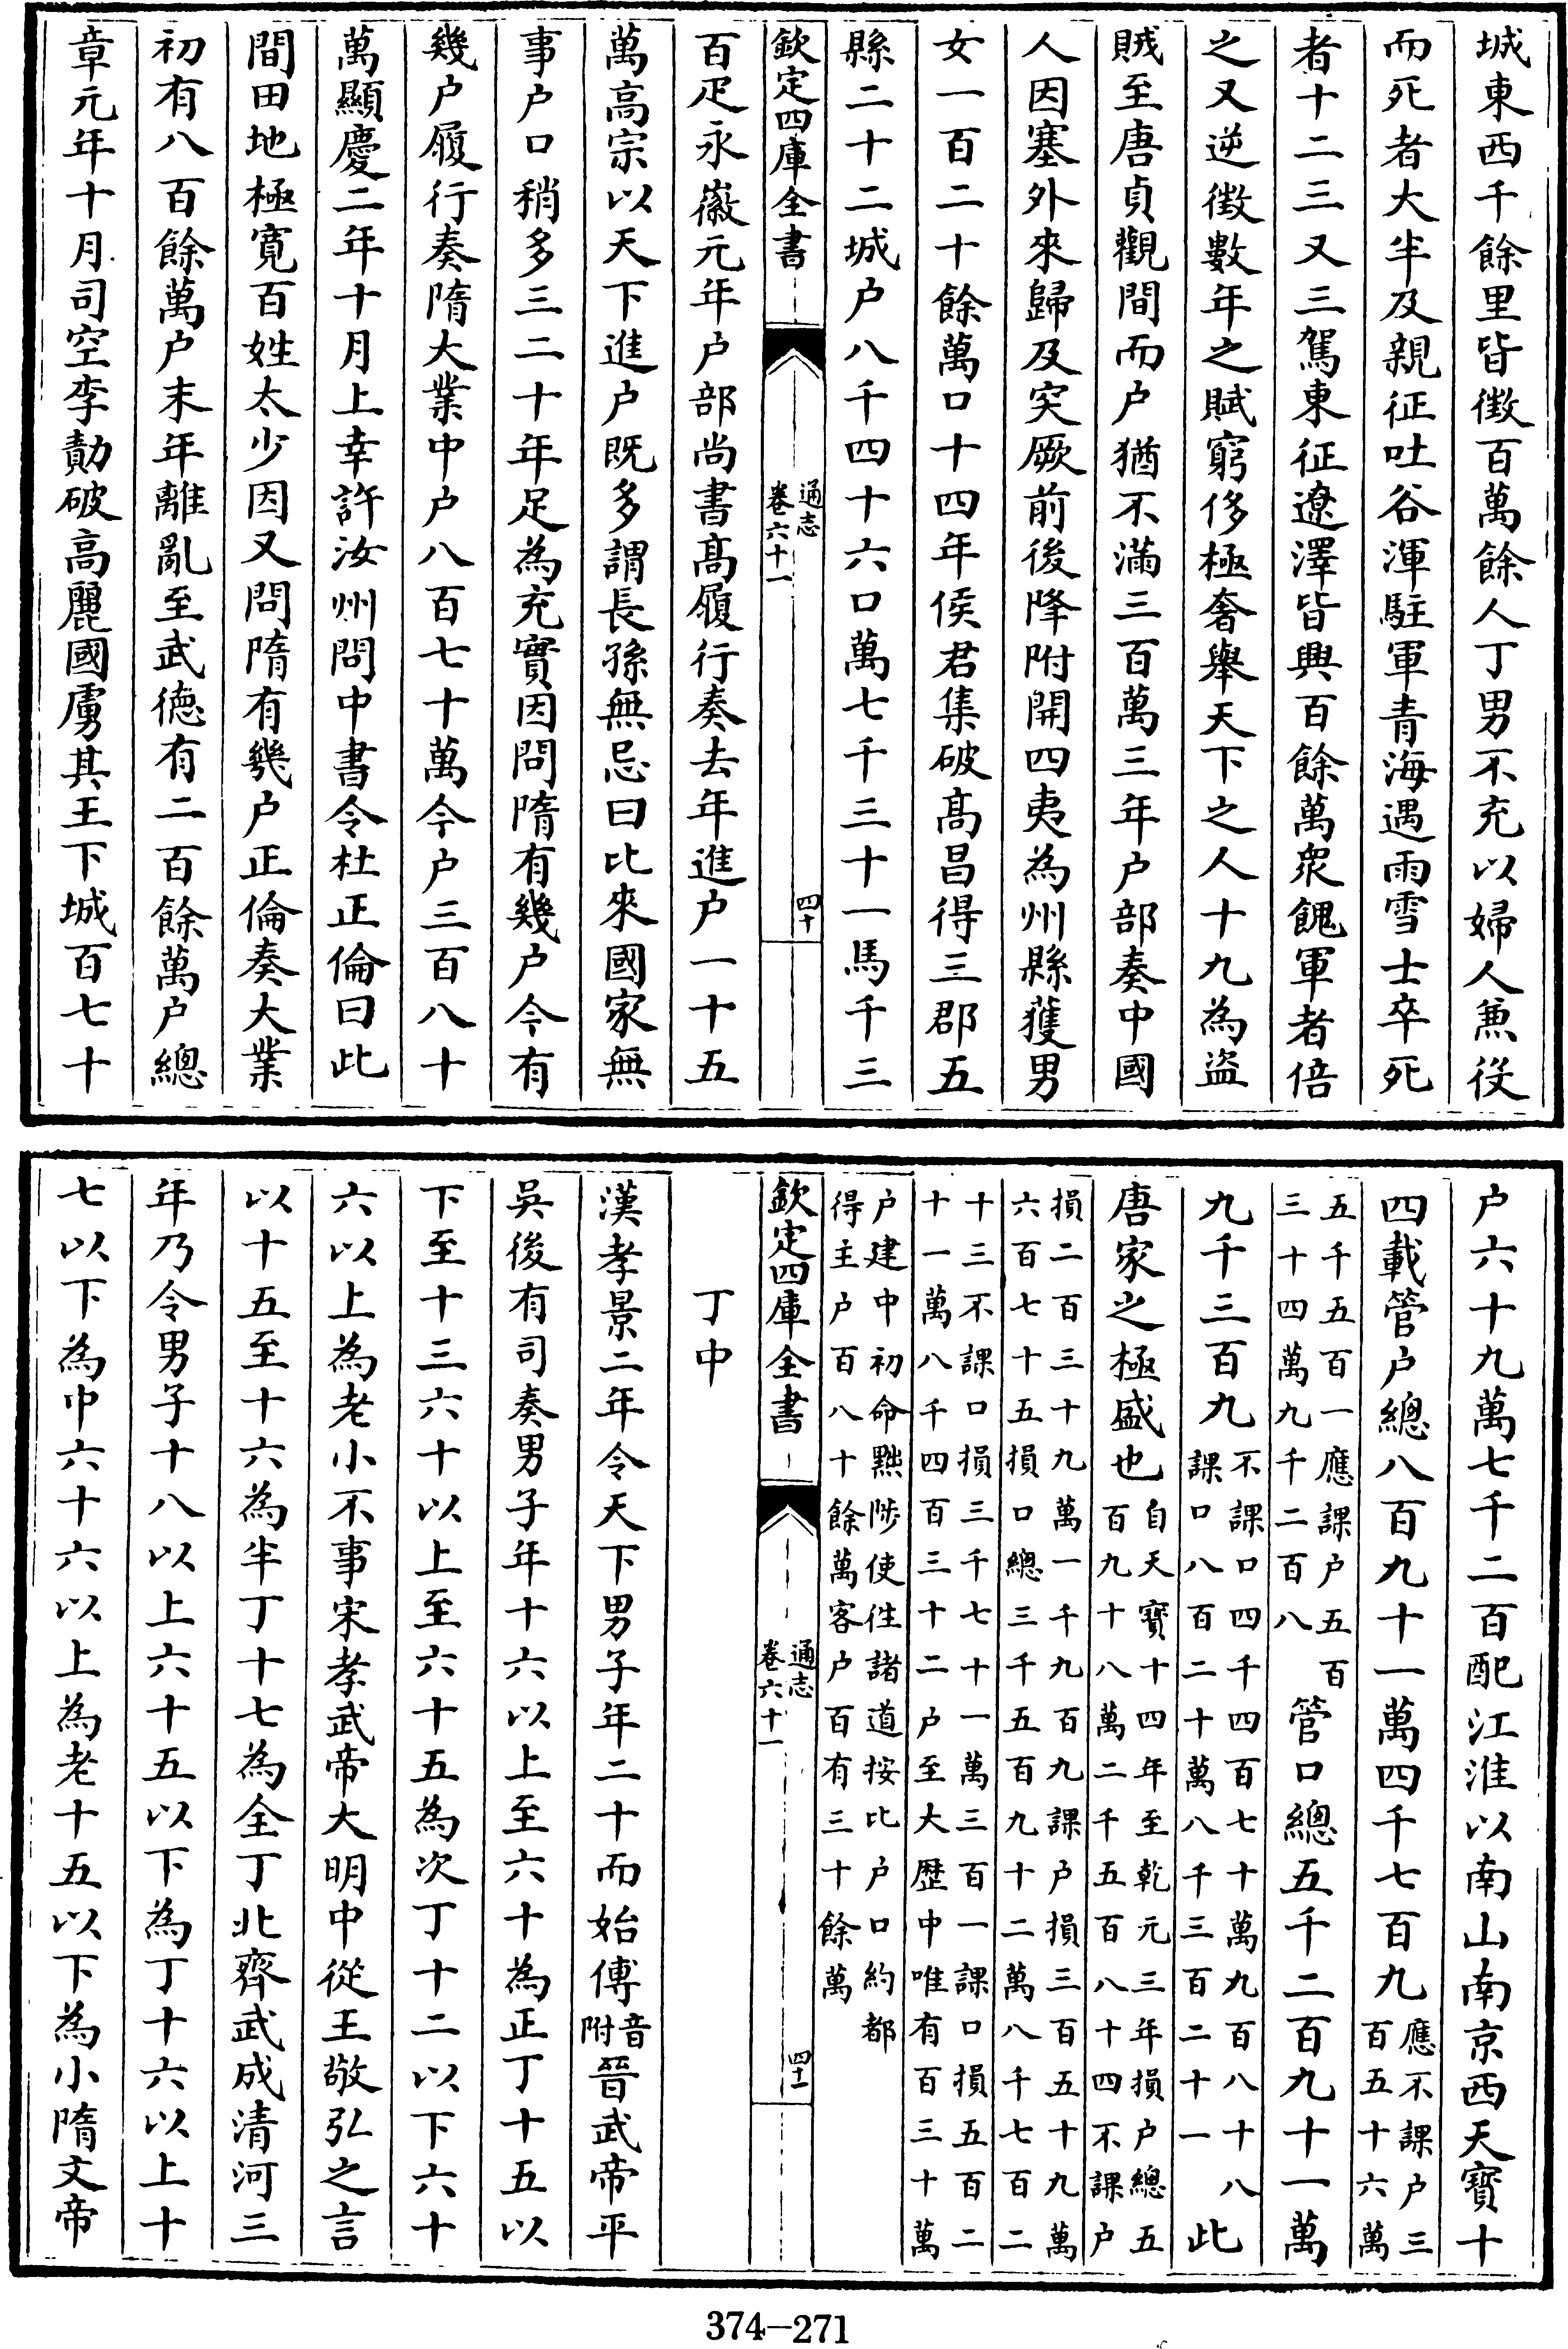 城東西千餘里皆徴百萬餘人丁男不充以婦人兼役
而死者大半及親征吐谷渾駐軍青海遇雨雪士卒死
者十二三又三駕東征遼澤皆興百餘萬衆餽軍者倍
之又逆徴數年之賦窮侈極奢舉天下之人十九為盜
賊至唐貞觀間而户猶不滿三百萬三年户部奏中國
人因塞外來歸及突厥前後降附開四夷為州縣獲男
女一百二十餘萬口十四年侯君集破髙昌得三郡五
縣二十二城户八千四十六口萬七千三十一馬千三
欽定四庫全書
通志
卷六十一
四十
百疋永徽元年户部尚書髙履行奏去年進户一十五
萬高宗以天下進户既多謂長孫無忌曰比來國家無
事户口稍多三二十年足為充實因問隋有幾户今有
幾户履行奏隋大業中户八百七十萬今户三百八十
萬顯慶二年十月上幸許汝州問中書令杜正倫曰此
間田地極寛百姓太少因又問隋有幾户正倫奏大業
初有八百餘萬户末年離亂至武德有二百餘萬户總
章元年十月司空李勣破高麗國虜其王下城百七十
户六十九萬七千二百配江淮以南山南京西天寳十
四載管户總八百九十一萬四千七百九
應不課户三
百五十六萬
五千五百一應課户五百
三十四萬九千二百八
管口總五千二百九十一萬
九千三百九
不課口四千四百七十萬九百八十八
課口八百二十萬八千三百二十一
此
唐家之極盛也
自天寳十四年至乾元三年損户總五
百九十八萬二千五百八十四不課户
損二百三十九萬一千九百九課户損三百五十九萬
六百七十五損口總三千五百九十二萬八千七百二
十三不課口損三千七十一萬三百一課口損五百二
十一萬八千四百三十二户至大歴中唯有百三十萬
户建中初命黜陟使往諸道按比户口約都
得主户百八十餘萬客户百有三十餘萬
欽定四庫全書
通志
卷六十一
四十一
丁中
漢孝景二年令天下男子年二十而始傅
音
附
晉武帝平
吳後有司奏男子年十六以上至六十為正丁十五以
下至十三六十以上至六十五為次丁十二以下六十
六以上為老小不事宋孝武帝大明中從王敬弘之言
以十五至十六為半丁十七為全丁北齊武成清河三
年乃令男子十八以上六十五以下為丁十六以上十
七以下為中六十六以上為老十五以下為小隋文帝
374—271